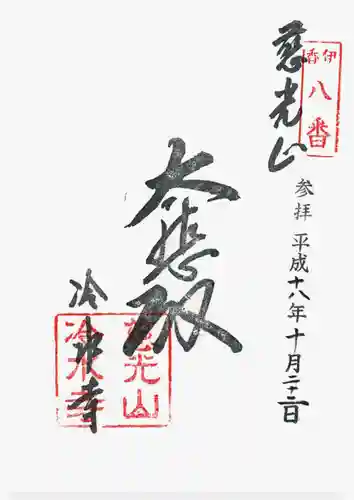 伊香
八番
慈光山
参拝 平成十八年十月二十二日
大悲殿
冷水寺
慈光山
冷水寺